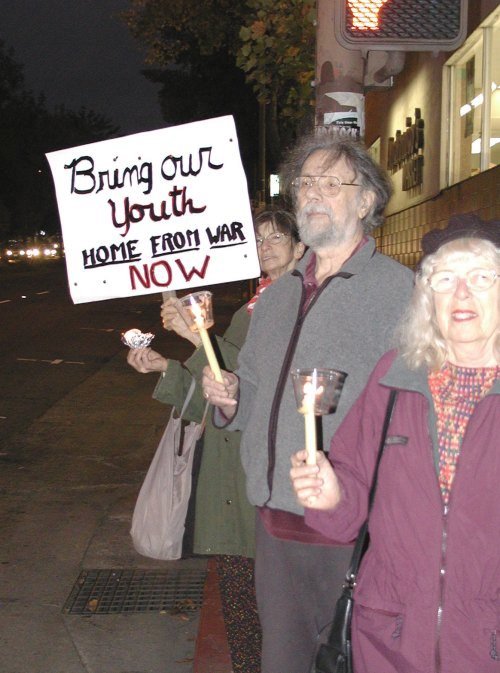 Bring our
Youth
HOME FROM WAR
NOW